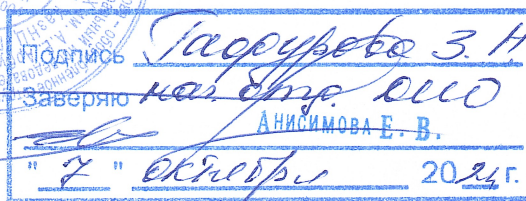 Подпись Гафурова З. Н
Заверяю нач. отд. ОИО
Анисимова Е. В.
" 7 " октября 2024 г.